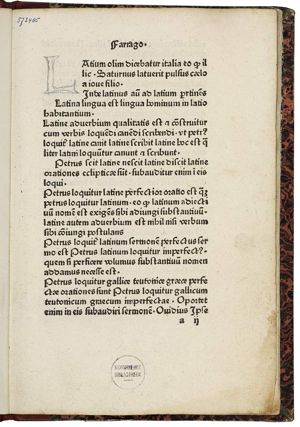 572405
Farrago.
LAtium olim dicebatur italia eo ꝙ il
lic Saturnus latuerit pulsus cœlo
a ioue filio
Inde latinus aū ad latium ꝑtinēs
Latina lingua est lingua hominum in latio
habitantium.
Latine aduerbium qualitatis est ⁊ cōstruitur
cum verbis loquēdi canēdi scribendi. vt petrꝰ
loquiť latine canit latine scribit latine hoc est ꝙ
liter latini loquūtur canunt ⁊ scribunt.
Petrus scit latine nescit latine discit latine
orationes eclipticæ sūt. subauditur enim ī eis
loqui.
Petrus loquitur latine ꝑfectior oratio est quā
petrus loquitur latinum. eo ꝙ latinum adiecti
uū nomē est exigēs sibi adiungi substantiuū.
latine autem aduerbium est nihil nisi verbum
sibi cōiungi postulans
Petrus loquiť latinum sermonē perfectus ser
mo est Petrus latinum loquitur imperfectꝰ.
quem si perficere volumus substantiuū nomen
addamus necesse est.
Petrus loquitur gallice teutonice græce perfe
ctæ orationes sunt Petrus loquitur gallicum
teutonicum graecum imperfectæ. Oportet
enim in eis subaudiri sermonē. Ouidius Ipse
a ij
BIBLIOTHEEK